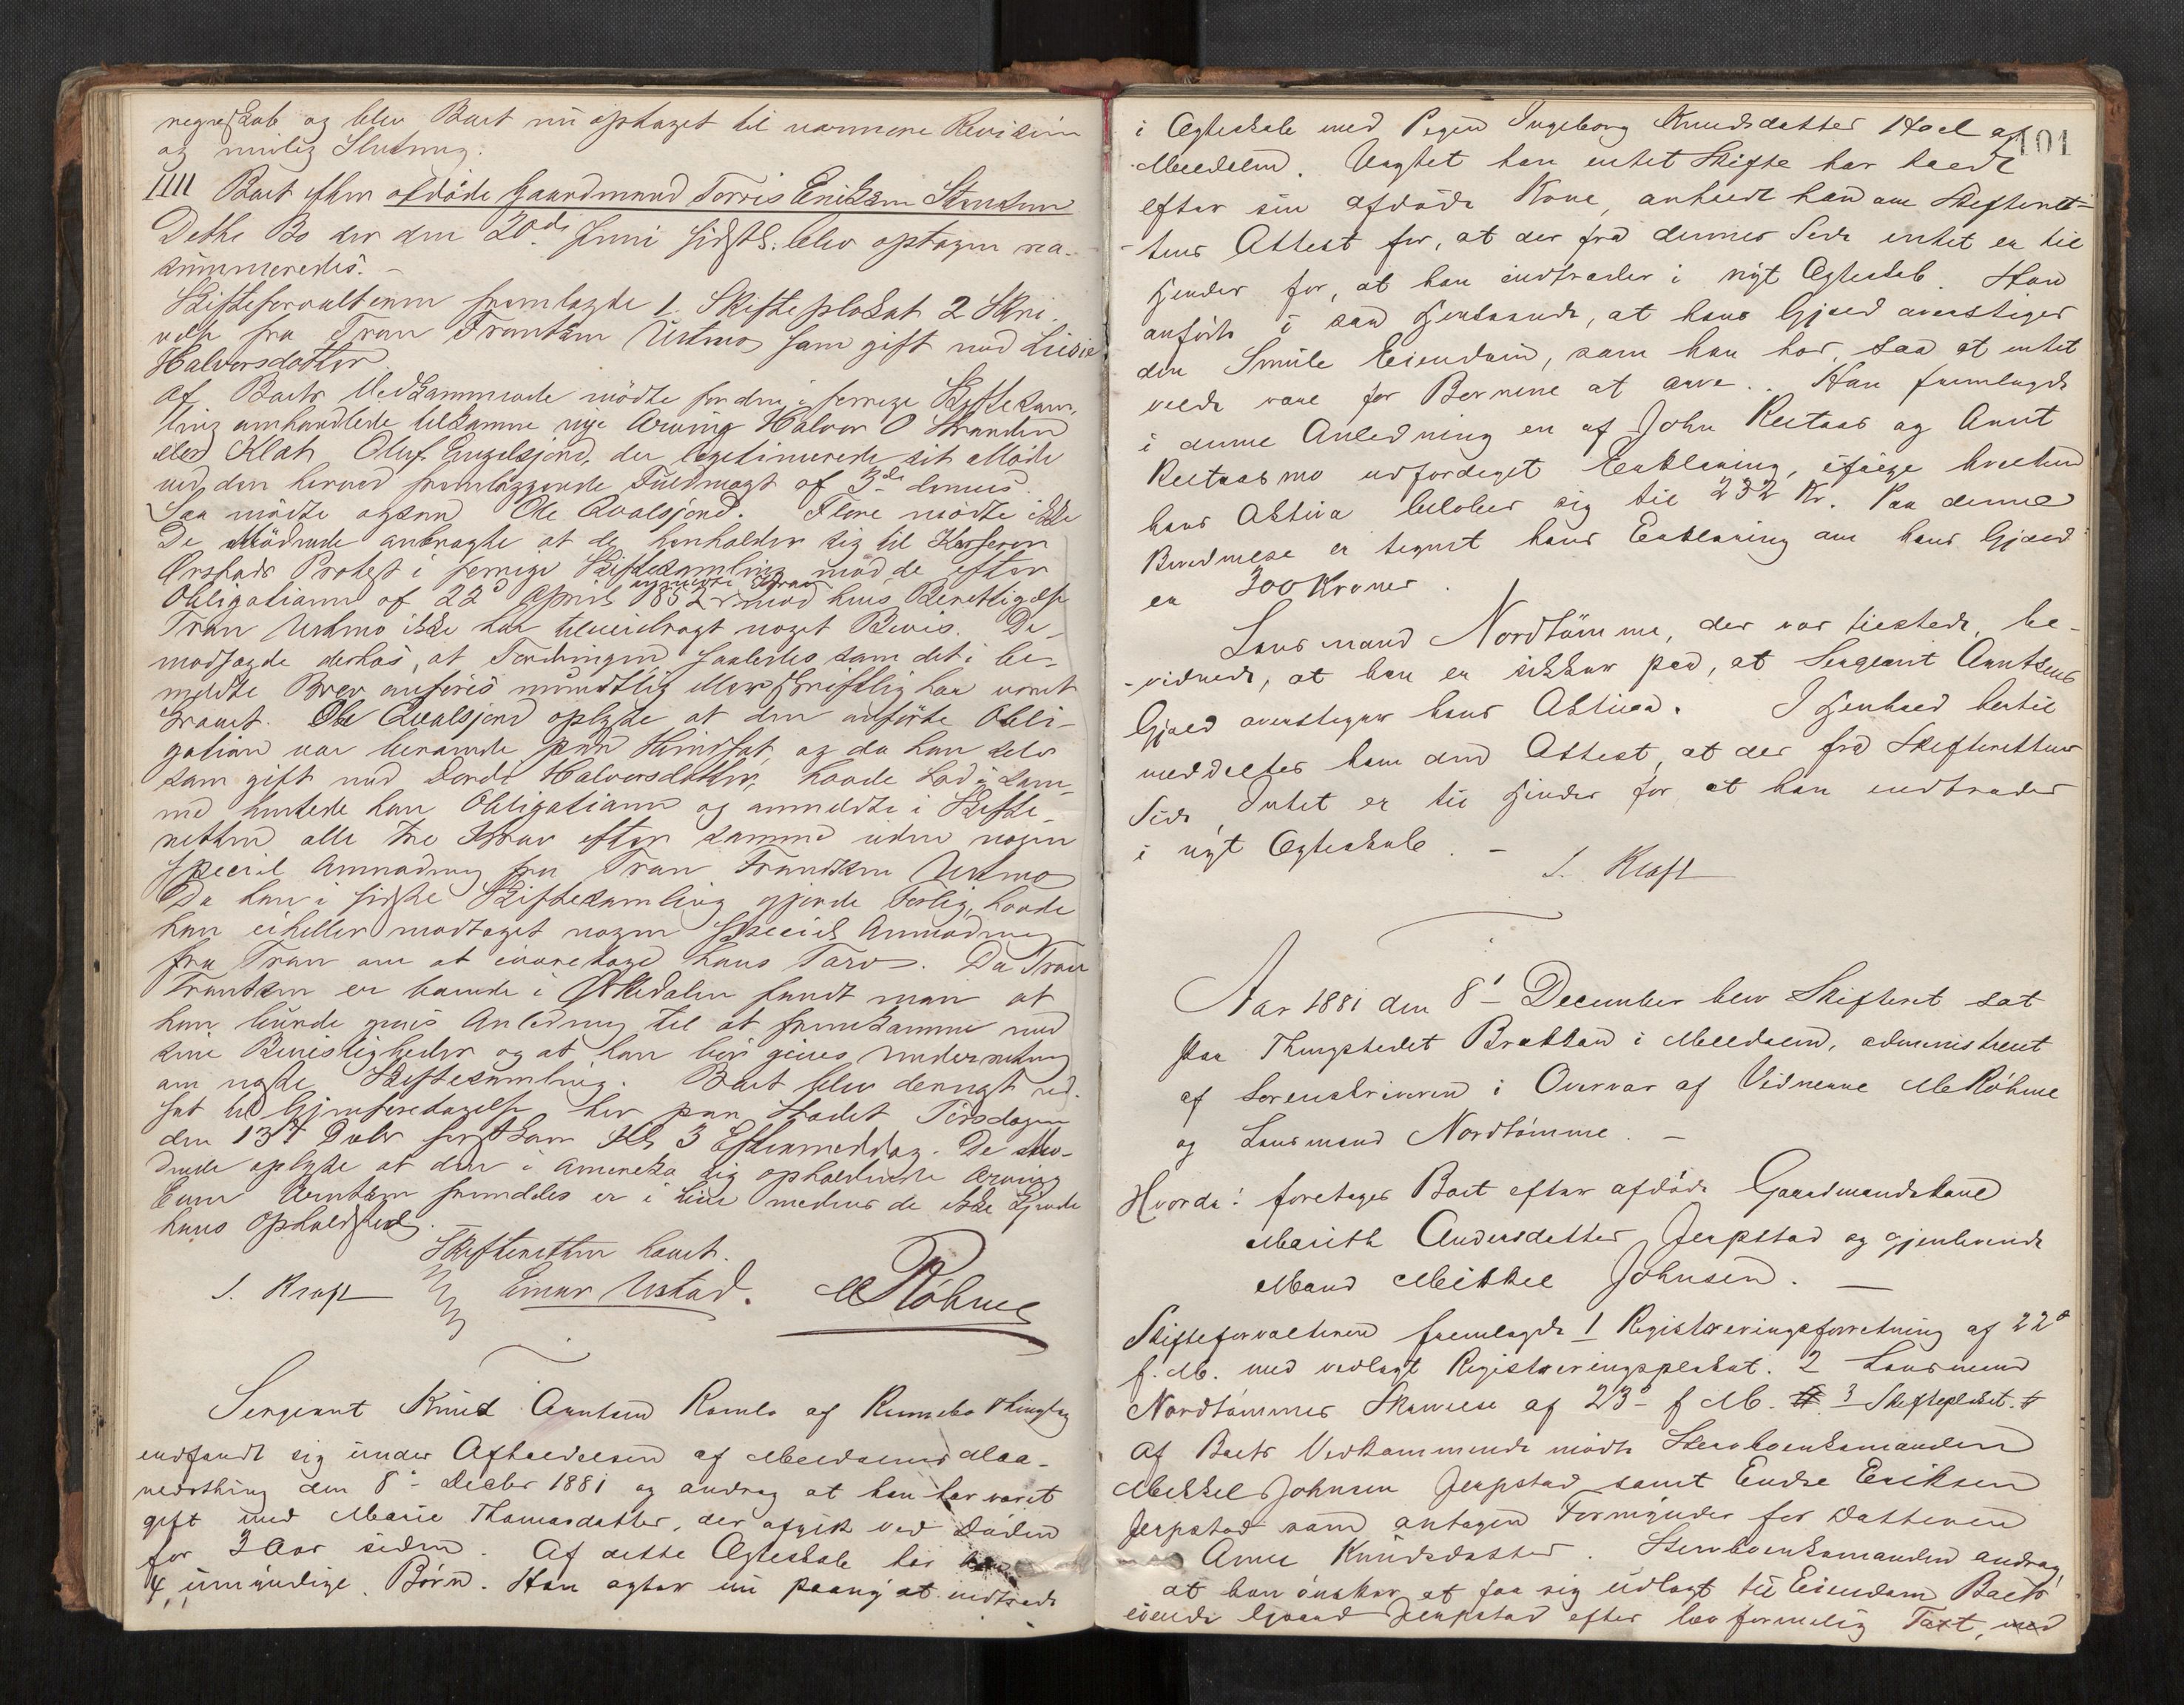 regnskab og blev Boet nu optaget til nærmere Revision
og mulig Slutning.
IIII Boet efter afdöde Gaardmand Torris Eriksen Stensen
Dette Bo der den 20de Juni sidstl. blev optagen rea-
sumeredes. -
Skifteforvalteren fremlagde 1. Skifteplakat 2 Skri-
velse fra Tran Trantsen Ustmo som gift med Lisie
Halvorsdatter.
Af Boets Vedkommende mödte for den i forrige Skiftesam-
ling omhandlede tilkomne nye Arving Halvor O Stranden
eller Klat Oluf Engelsjord, der legitimerede sit Möde
ved den herved fremlæggende Fuldmagt af 3de dennes.
Saa mödte ogsaa Ole Qvalsjord. Flere mödte ikke
De Mödende anbragte at de henholder sig til Kasserer
Örstads Protest i forrige Skiftesamling möd de efter
Obligationen af 22d April 1852 anmeldte Krav mod hvis Berettigelse
Tran Ustmo ikke har tilveiebragt noget Bevis. De
modsagde derhos, at Fordringen saaledes som det i be-
meldte Brev anföres mundtlig eller skriftlig har været
krævet. Ole Qvalsjord oplyste at den anförte Obli-
gation var beroende paa Hindsat og da han selv
som gift med Dordi Halvorsdatter, havde Lod i sam-
me hentede han Obligationen og anmeldte i Skifte-
retten alle tre Krav efter samme uden nogen
speciel Anmodning fra Tran Trantsen Ustmo
Da han i sidste Skiftesamling gjorde Forlig, havde
han eiheller modtaget nogen speciel Anmodning
fra Tran om at ivaretage hans Tarv. Da Tran
Trantsen er boende i Orkedalen fandt man at
han burde gives Anledning til at fremkomme med
sine Bevisligheder og at han bör gives Underretning
om næste Skiftesamling. Boet blev derngst ud-
sat til Gjenforetagelse her paa Stedet Tirsdagen
den 13d Dcbr förstkom Kl 3 Eftermeddag. De Mö-
dende oplyste at den i Amerika sig opholdende Arving
Even Arntsen fremdeles er i Live medens de ikke kjende
hans Opholdsted.
Skifteretten hævet.
S. Kraft Einar Ustad. M Röhme
Sergeant Knud Arntsen Romlo af Rennebo Thinglag
indfandt sig under Afholdelsen af Meldalens Maa-
nedsthing den 8de Decbr 1881 og androg at han har været
gift med Marie Thomasdatter, der afgik ved Döden
for 3 Aar siden. Af dette Ægteskab har han
4 umyndige Börn. Han agter nu paany at indtræde
101
i Ægteskab med Pigen Ingeborg Knudsdatter Hoel af
Meldalen. Uagtet han intet Skifte har havt
efter sin afdöde Kone, anholdt han om Skifteret-
tens Attest for, at der fra dennes Side intet er til
Hinder for, at han indtræder i nyt Ægteskab. Han
anförte i saa Henseende, at hans Gjæld overstiger
den Smule Eiendom, som han har, saa at intet
vilde være for Börnene at arve. Han fremlagde
i denne Anledning en af John Reetaas og Arnt
Reetaasmo udfærdiget Erklæring, ifölge hvilken
hans Aktiva belöber sig til 232 Kr. Paa denne
Bevidnelse er tegnet hans Erklæring om hans Gjæld:
er 300 Kroner.
Lensmand Nordtömme, der var tilstede, be-
vidnede, at han er sikker paa, at Sergeant Arntsens
Gjæld overstiger hans Aktiva. I Henhold hertil
meddeltes ham den Attest, at der fra Skifterettens
Side Intet er til Hinder for at han indtræder
i nyt Ægteskab. -
S. Kraft
Aar 1881 den 8de December blev Skifteret sat
paa Thingstedet Brattan i Meldalen, administreret
af Sorenskriveren i Overvær af Vidnerne M Röhme
og Lensmand Nordtömme. -
Hvorda: foretoges Boet efter afdöde Gaardmandskone
Marith Andersdatter Jerpstad og gjenlevende
Mand Mikkel Johnsen. -
Skifteforvalteren fremlagde 1 Registreringsforretning af 22d
f. M. med vedlagt Registreringsplakat. 2 Lensmand
Nordtömmes Skrivelse af 23d f M. 3 Skifteplakat.
Af Boets Vedkommende mödte Stervboenkemanden
Mikkel Johnsen Jerpstad samt Endre Eriksen
Jerpstad som antagen Formynder for Datteren
Anne Knudsdatter. Stervboenkemanden androg,
at han önsker at faa sig udlagt til Eiendom Boets
eiende Gaard Jerpstad efter lovformelig Taxt, med